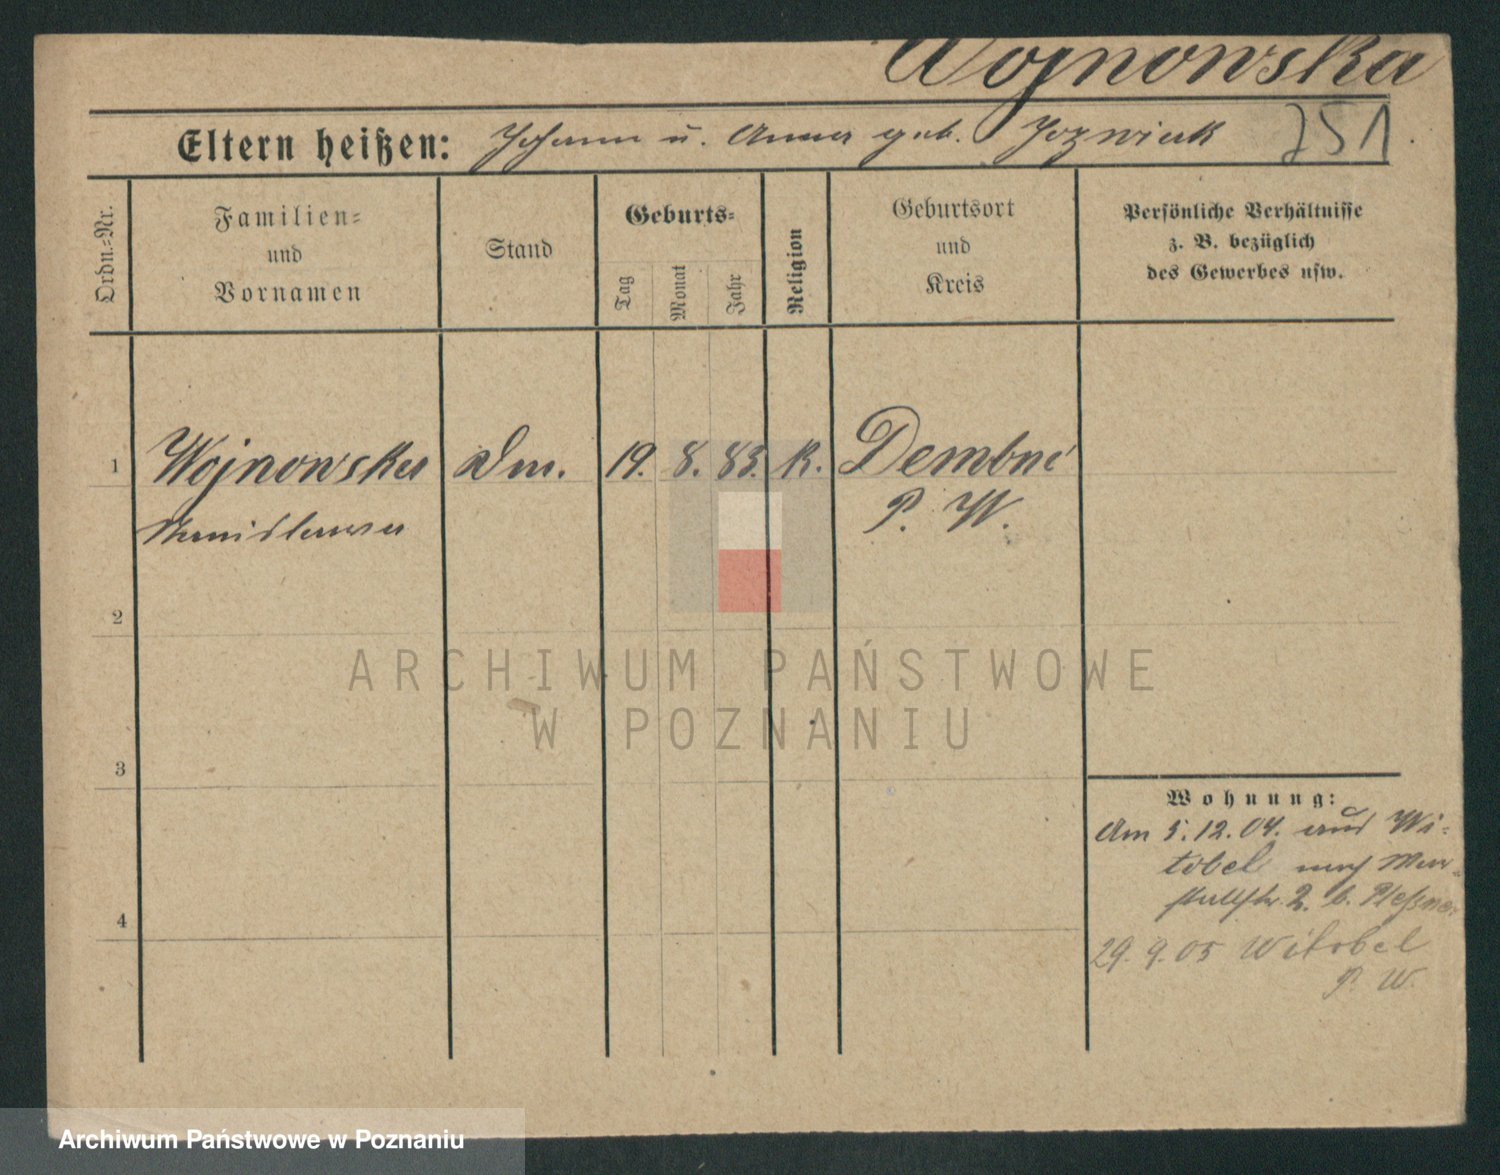 Wojnowska
Eltern heißen: Johann u. Anna geb. Jozwiak 751
Ordn.=Nr.
Familien=
und
Vornamen
Stand
Geburts=
Tag
Monat
Jahr
Religion
Geburtsort
und
Kreis
Persönliche Verhältnisse
z. B. bezüglich
des Gewerbes usw.
1 Wojnowska Dm. 19. 8. 83. K. Dembno
Stanislawa P. W.
2
3
4
ARCHIWUM PAŃSTWOWE
W POZNANIU
Wohnung:
Am 5.12.04. aus Wi=
tobel nach
2. b. Pleßner
29. 9. 05 Witobel
P. W.
Archiwum Państwowe w Poznaniu